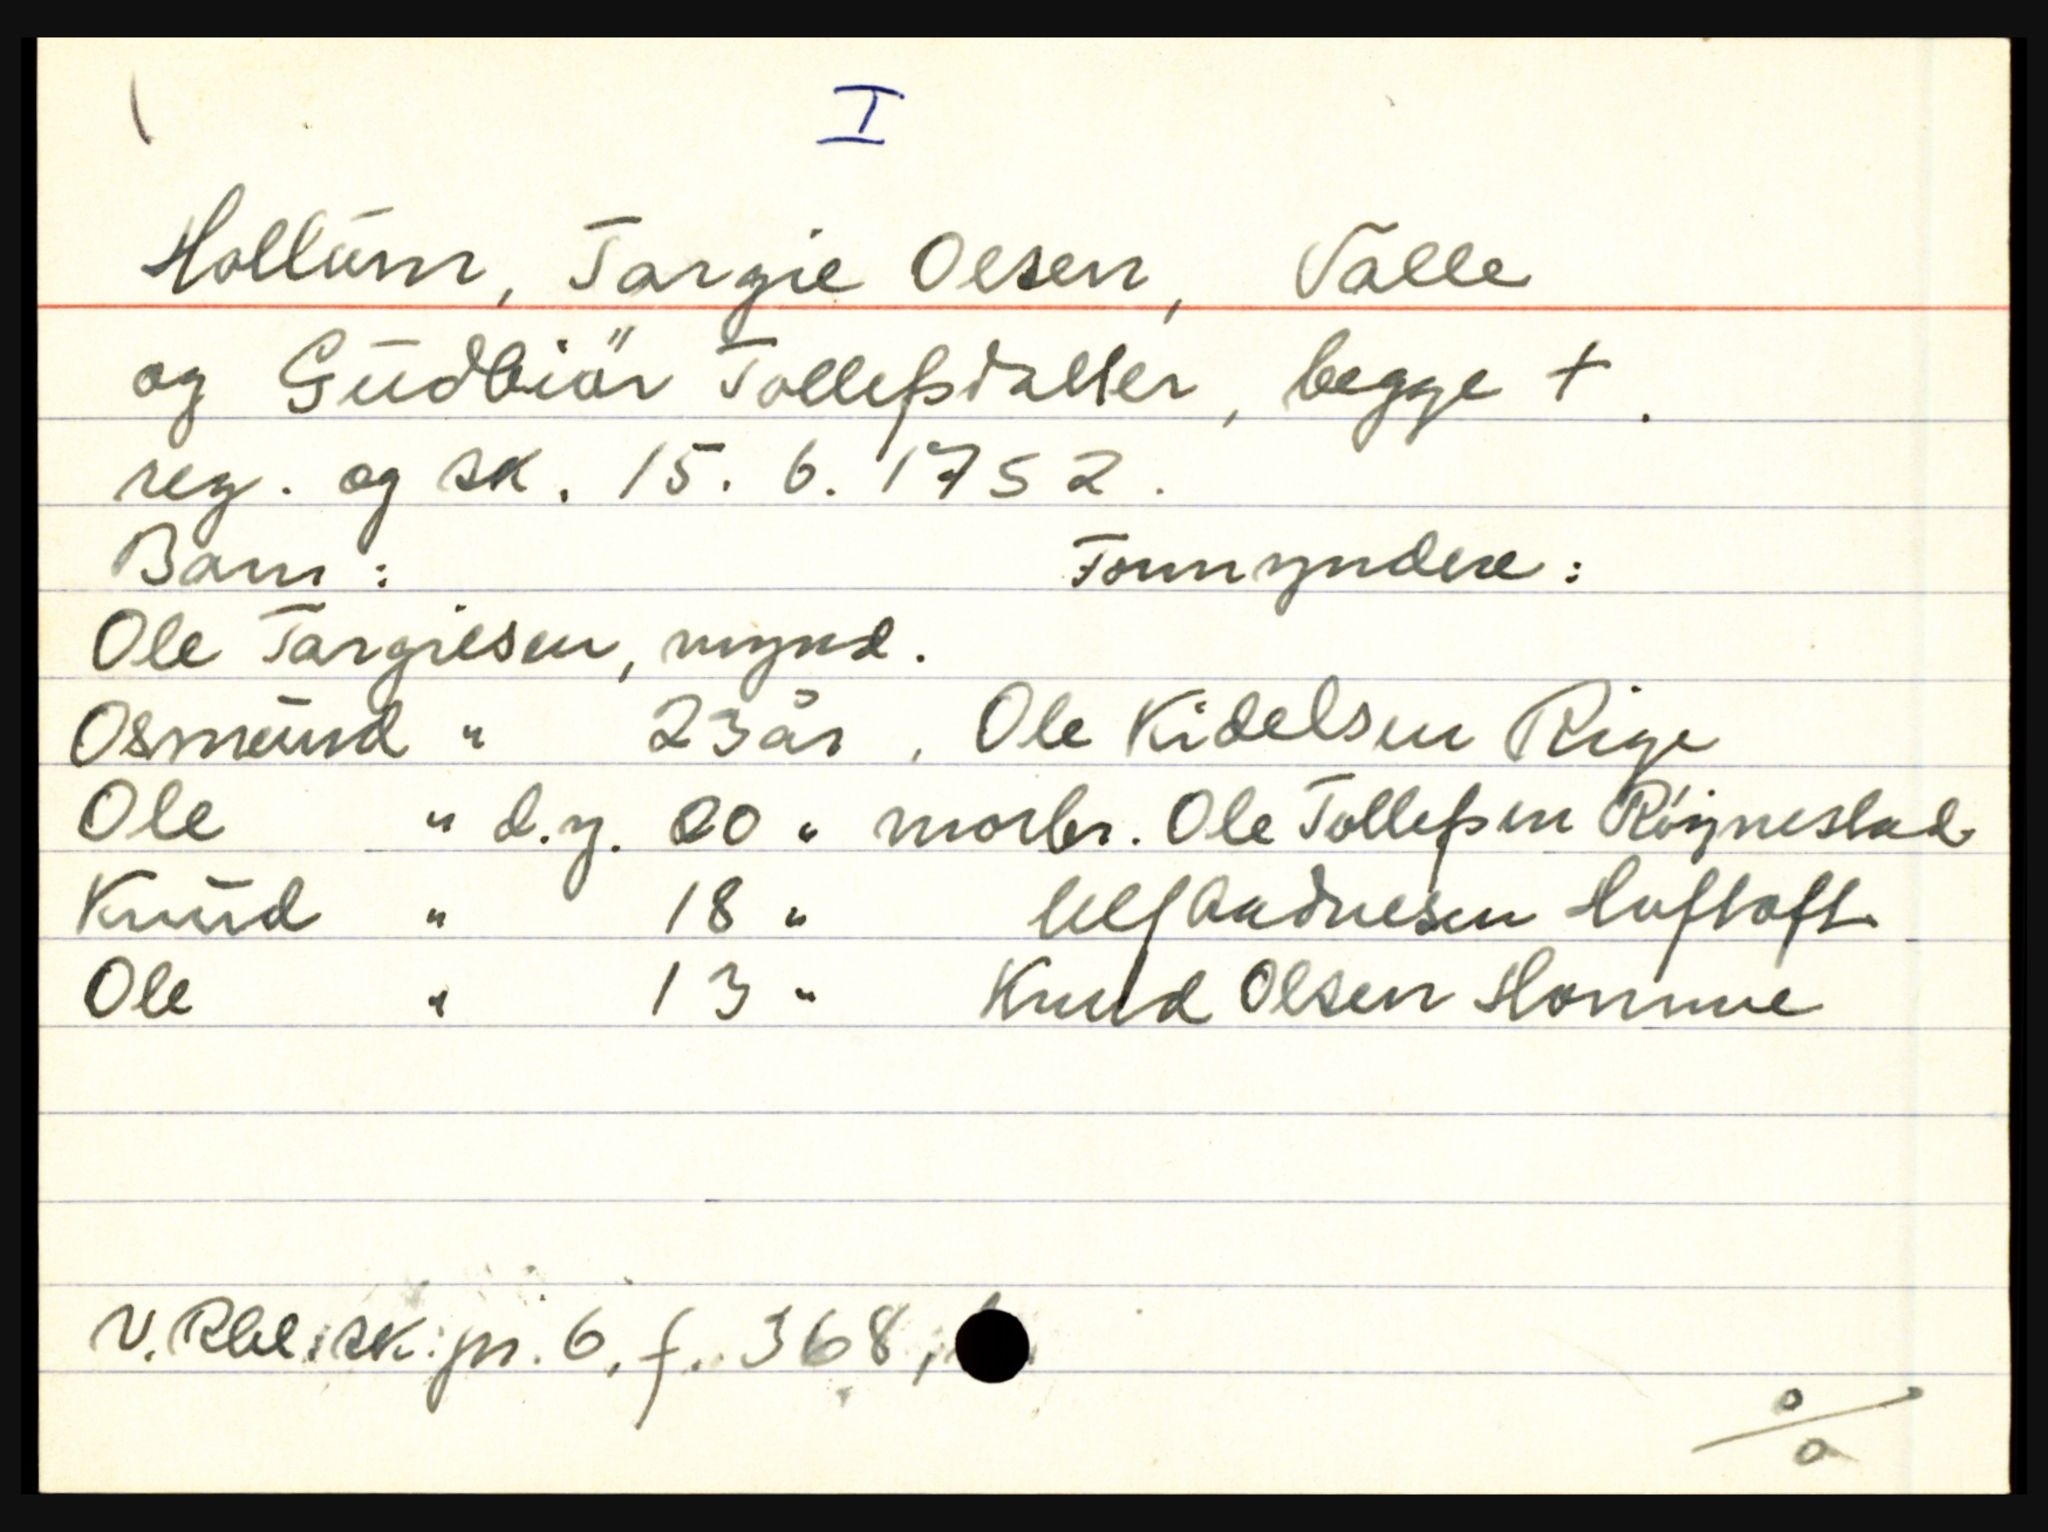 I
Hollum, Targie Olsen, Valle
og Gudbiör Tollefsdatter, begge +.
reg. og sk. 15. 6. 1752.
Barn: Formyndere:
Ole Targiesen, mynd.
Osmund " 23 år, Ole Kidelsen Rige
Ole " d.y. 20 " morbr. Ole Tollefsen Röynestad
Knud " 18 " Ulf Aadnesen Hoftoft
Ole " 13 " Knud Olsen Homme
V. Rbl. sk. pr. 6, f. 368,